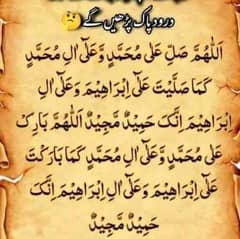 درود پاک پڑھیں گے🤔
اَللّٰهُمَّ صَلِّ عَلٰی مُحَمَّدٍ وَّعَلٰٓی اٰلِ مُحَمَّدٍ
کَمَا صَلَّیْتَ عَلٰٓی اِبْرَاهِیْمَ وَعَلٰٓی اٰلِ
اِبْرَاهِیْمَ اِنَّکَ حَمِیْدٌ مَّجِیْدٌ اَللّٰهُمَّ بَارِکْ
عَلٰی مُحَمَّدٍ وَّعَلٰٓی اٰلِ مُحَمَّدٍ کَمَا بَارَکْتَ
عَلٰٓی اِبْرَاهِیْمَ وَعَلٰٓی اٰلِ اِبْرَاهِیْمَ اِنَّکَ
حَمِیْدٌ مَّجِیْدٌ